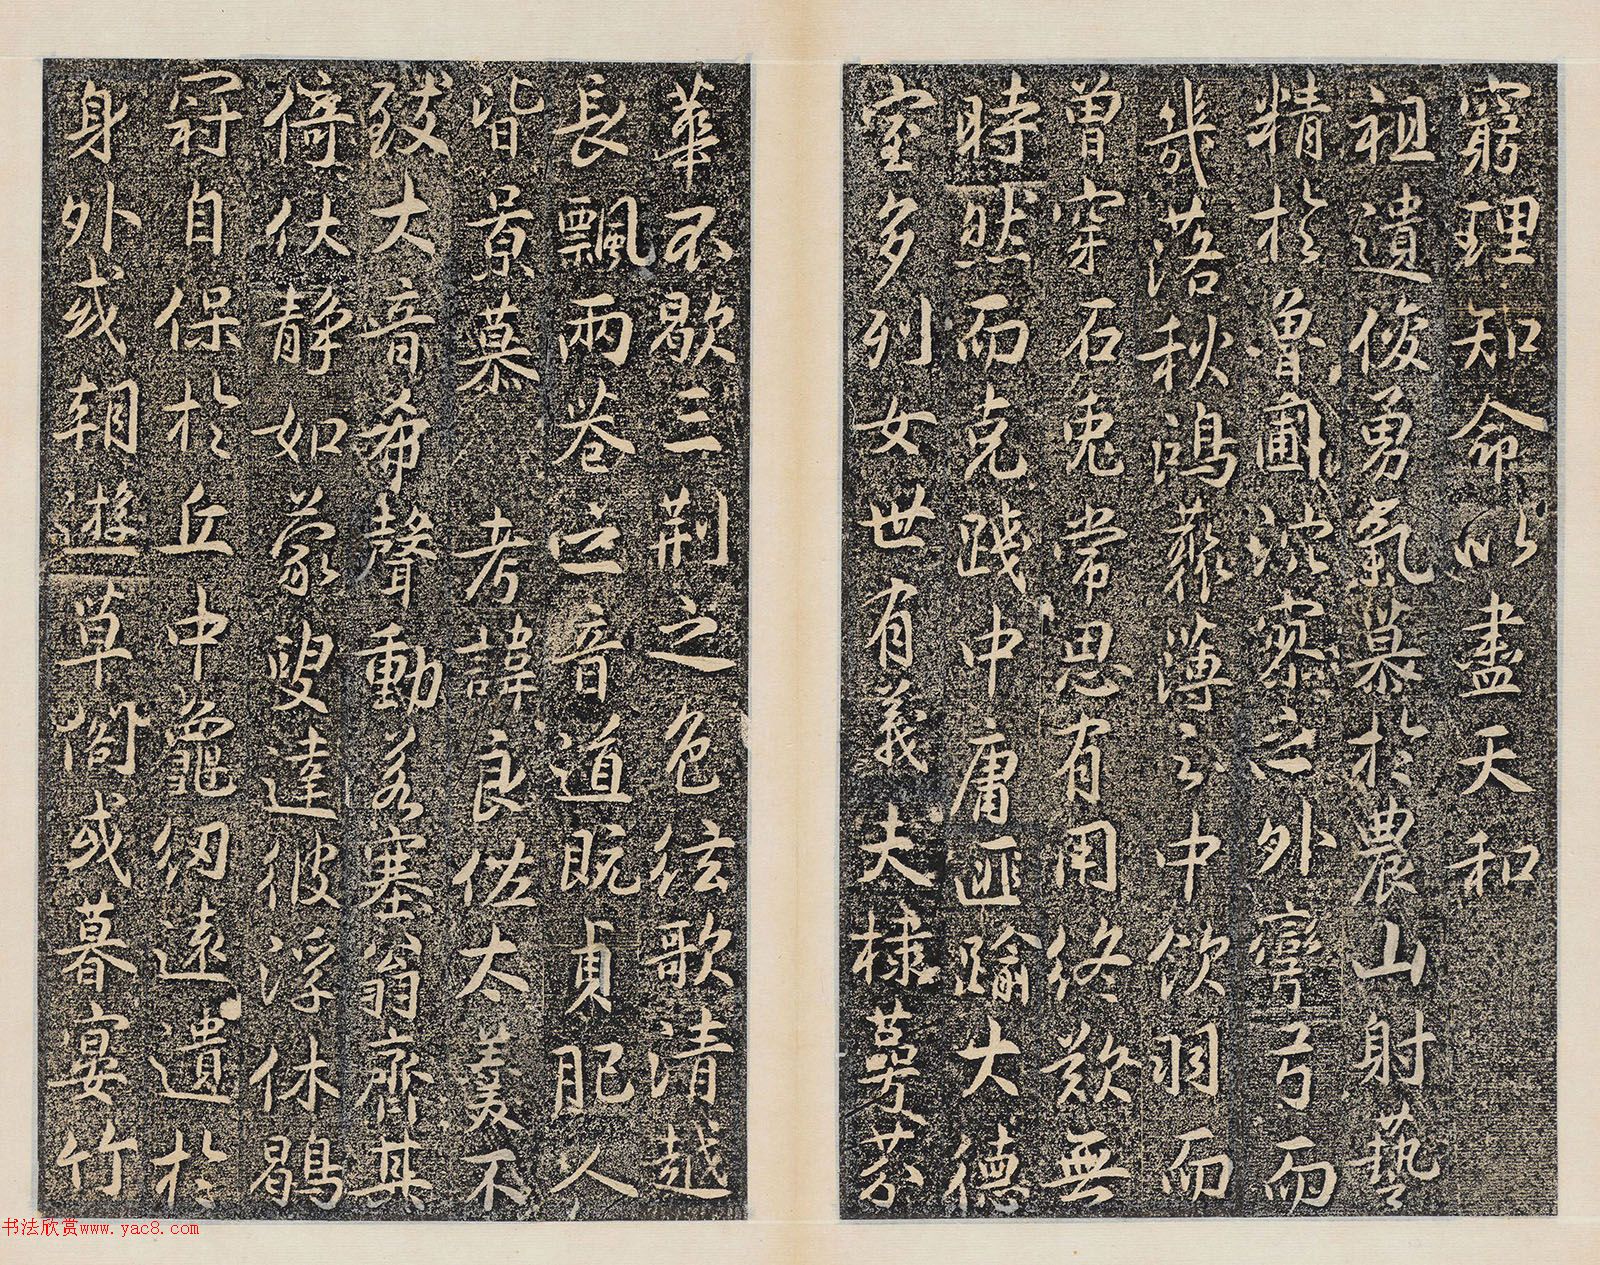 窮理知命以盡天和
祖遺俊勇氣慕於農山射藝
精於魯圃泬寥之外彎弓而
幾落秋鴻藂薄之中飲羽而
曾穿石兔常思有用終歎無
時然而克踐中庸匪踰大德
室多列女世有義夫棣萼芬
華不歇三荊之色絃歌清越
長飄兩巷之音道既貞肥人
皆景慕 考諱良佐太羹不
致大音希聲動若塞翁齊其
倚伏靜如蒙叟達彼浮休鶡
冠自保於丘中龜紐遠遺於
身外或朝遊草閣或暮宴竹
书法欣赏www.yac8.com